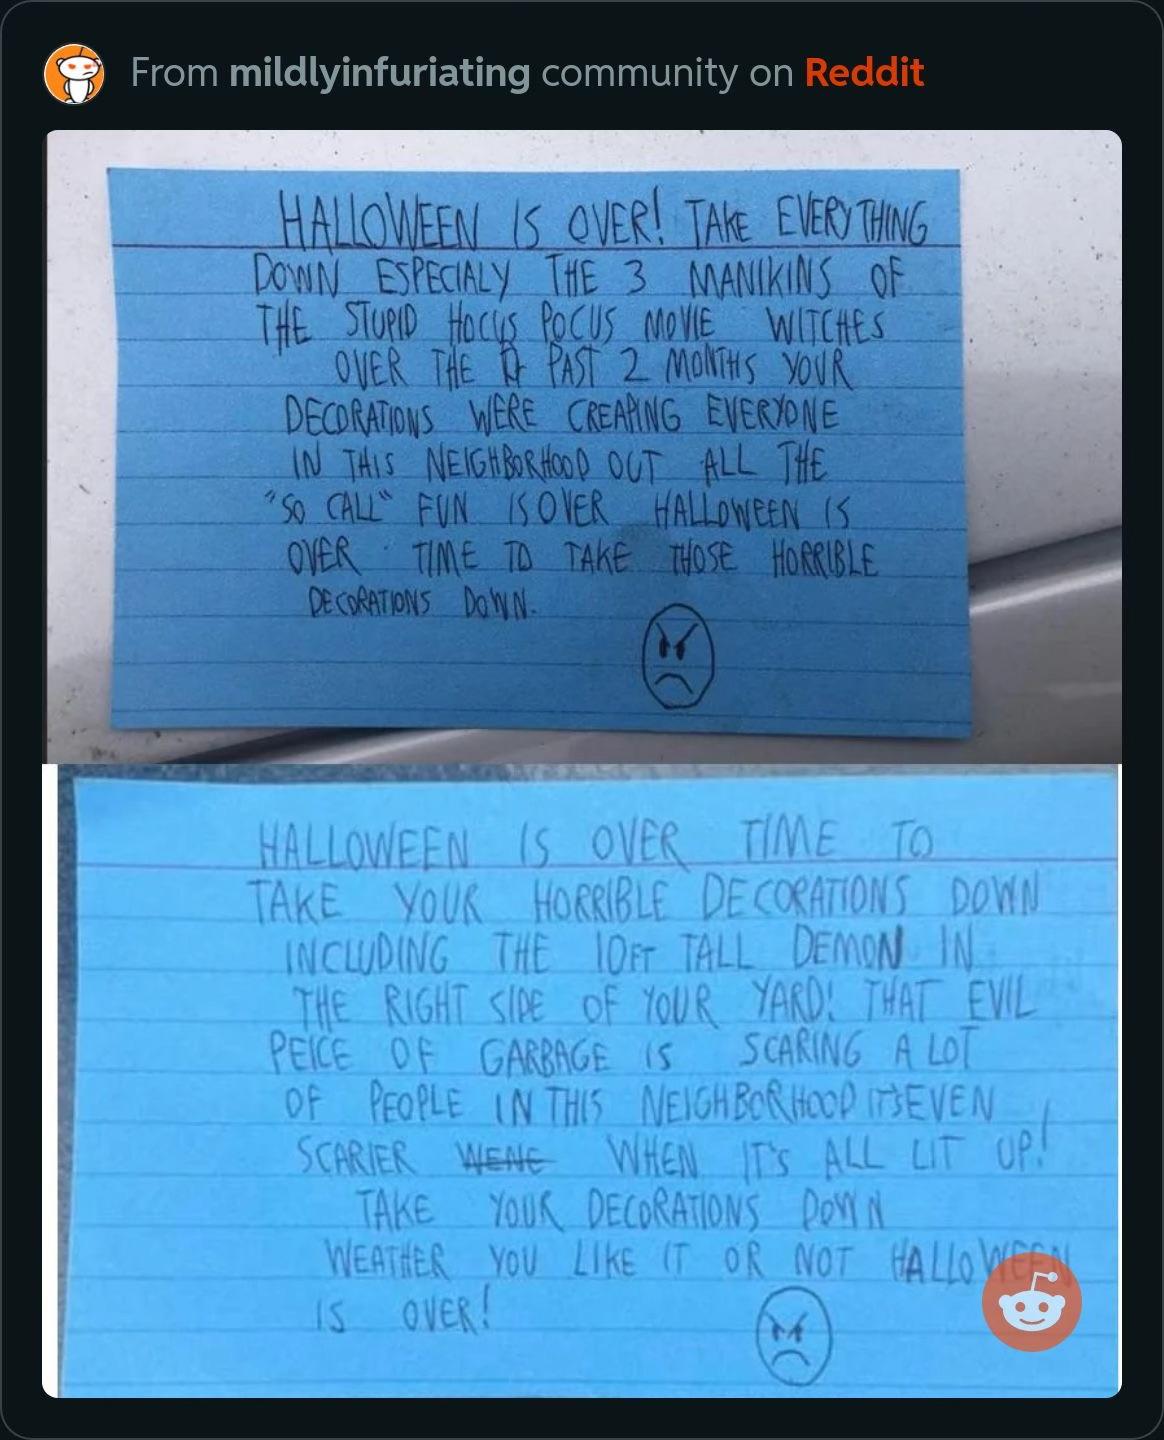 From mildlyinfuriating community on Reddit
HALLOWEEN IS OVER! TAKE EVERYTHING
DOWN ESPECIALY THE 3 MANIKINS OF
THE STUPID HOCUS POCUS MOVIE WITCHES
OVER THE PAST 2 MONTHS YOUR
DECORATIONS WERE CREAPING EVERYONE
IN THIS NEIGHBORHOOD OUT ALL THE
"SO CALL" FUN IS OVER HALLOWEEN IS
OVER TIME TO TAKE THOSE HORRIBLE
DECORATIONS DOWN.
HALLOWEEN IS OVER TIME TO
TAKE YOUR HORRIBLE DECORATIONS DOWN
INCLUDING THE 10FT TALL DEMON IN
THE RIGHT SIDE OF YOUR YARD! THAT EVIL
PEICE OF GARBAGE IS SCARING A LOT
OF PEOPLE IN THIS NEIGHBORHOOD IT'S EVEN
SCARIER WENE WHEN IT'S ALL LIT UP!
TAKE YOUR DECORATIONS DOWN
WEATHER YOU LIKE IT OR NOT HALLOWEEN
IS OVER!